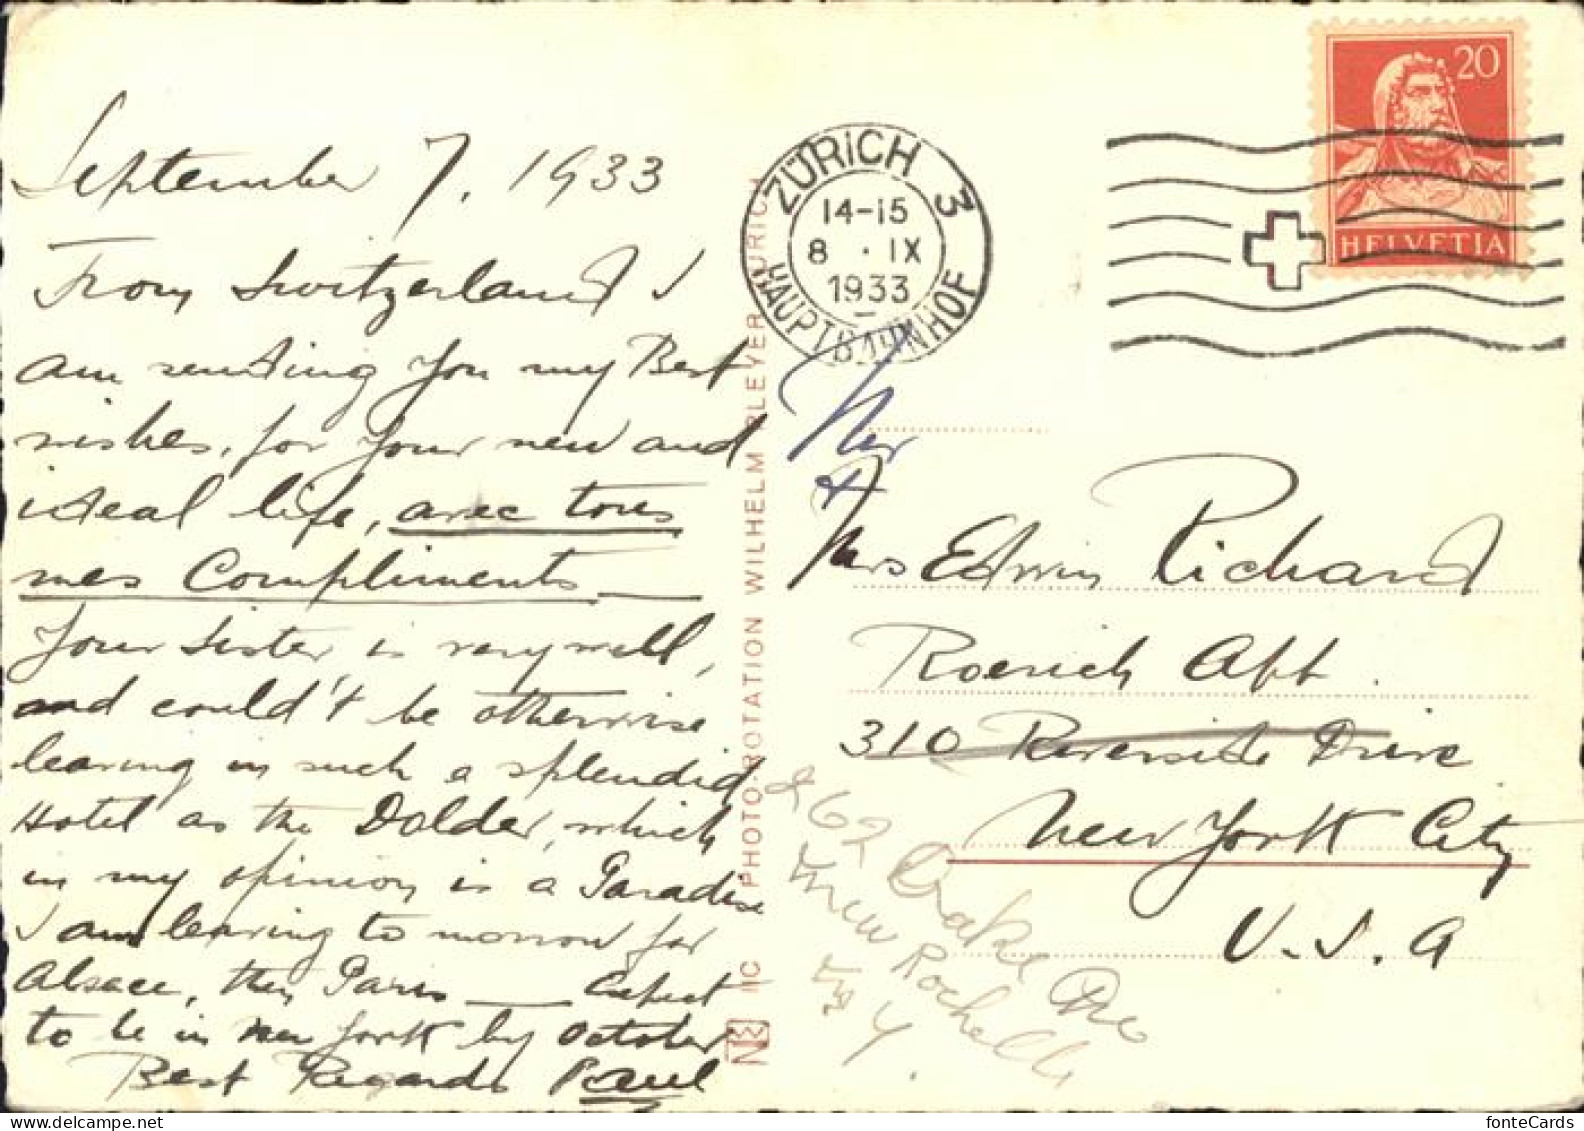 September 7, 1933
From Switzerland I
am sending you my Best
wishes, for your new and
ideal life, avec tous
mes Compliments
Your Sister is very well,
and could't be otherwise
leaving in such a splendid
Hotel as the Dolder, which
in my opinion is a Paradise
I am leaving to morrow for
Alsace, then Paris — Expect
to be in New York by October
Best Regards Paul
IIC PHOTO-ROTATION WILHELM PLEYER ZÜRICH
ZÜRICH 3
14-15
8 · IX
1933
HAUPTBAHNHOF
20
HELVETIA
Mr
&
Mrs Edwin Richard
Roerich Apt.
310 Riverside Drive
New York City
U.S.A
262 Drake Ave
New Rochelle
N Y
fonteCards